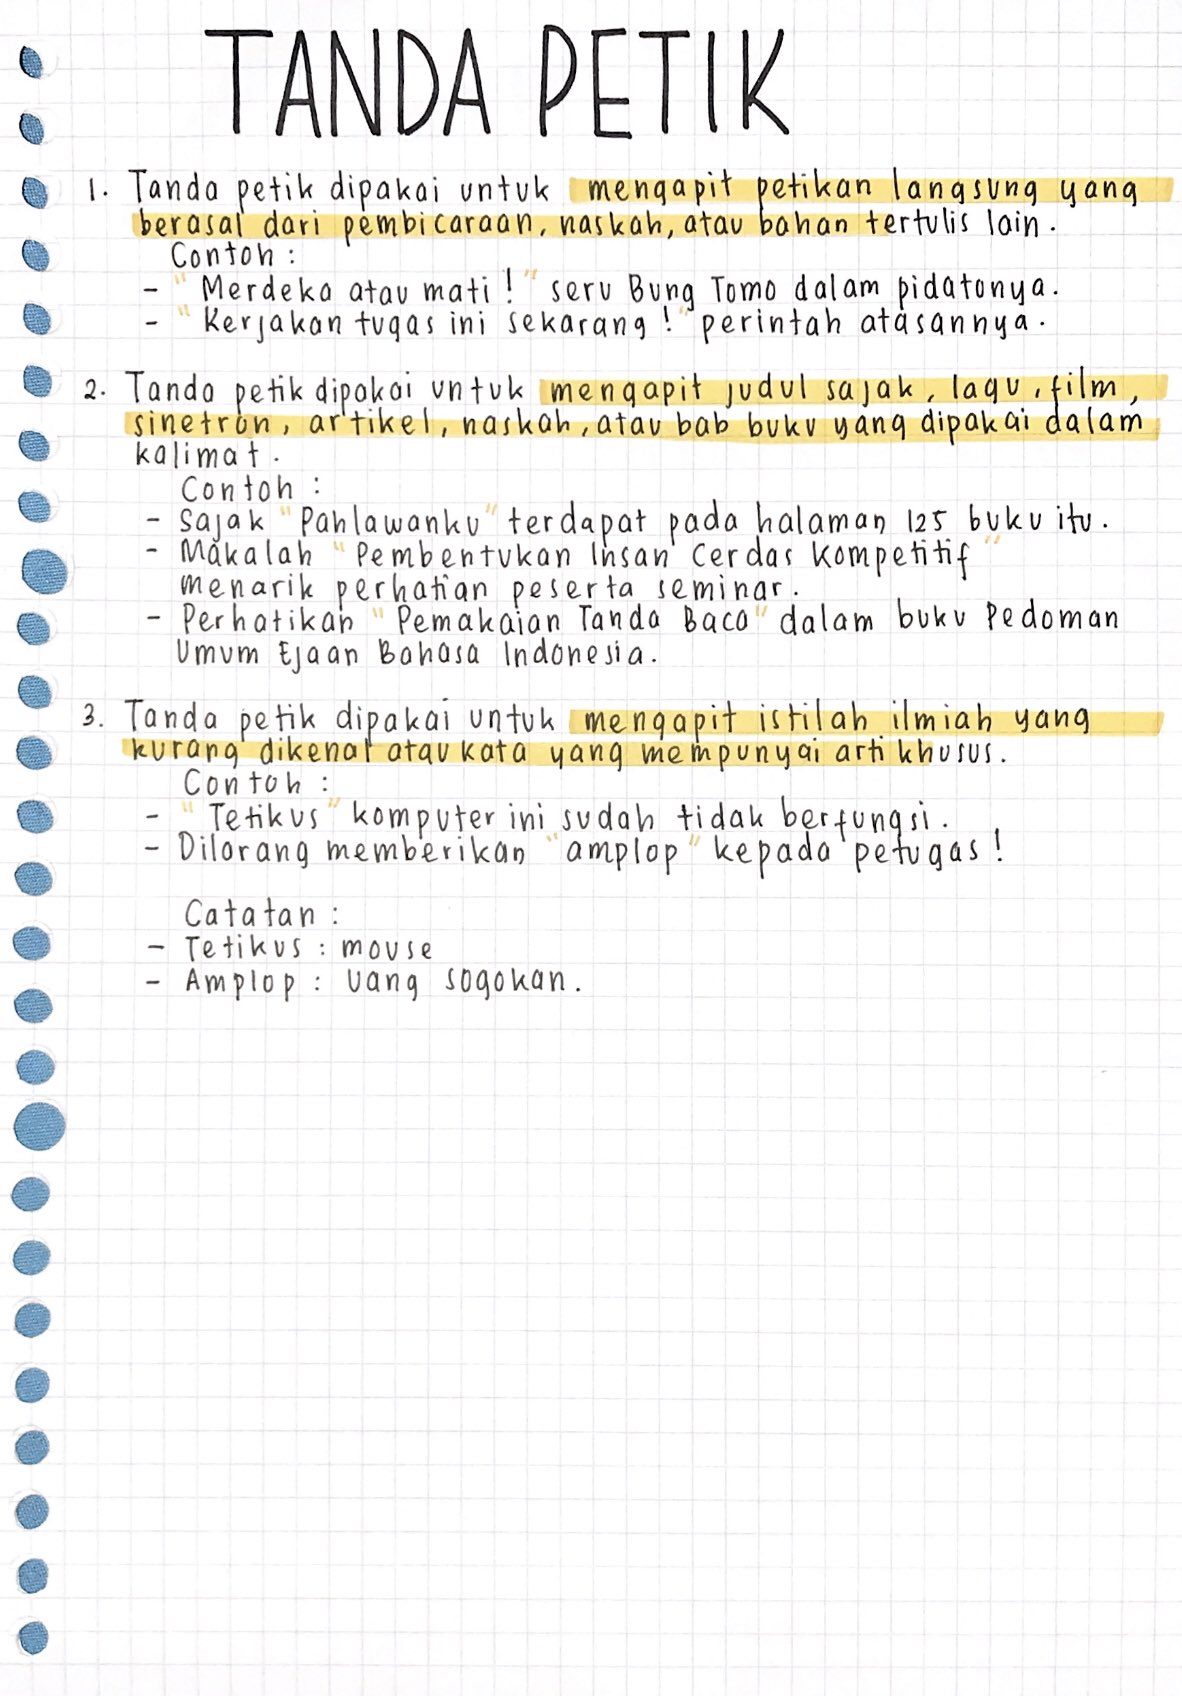 TANDA PETIK
1. Tanda petik dipakai untuk mengapit petikan langsung yang
berasal dari pembicaraan, naskah, atau bahan tertulis lain.
Contoh :
- "Merdeka atau mati!" seru Bung Tomo dalam pidatonya.
- "Kerjakan tugas ini sekarang!" perintah atasannya.
2. Tanda petik dipakai untuk mengapit judul sajak, lagu, film,
sinetron, artikel, naskah, atau bab buku yang dipakai dalam
kalimat.
Contoh :
- Sajak "Pahlawanku" terdapat pada halaman 125 buku itu.
- Makalah "Pembentukan Insan Cerdas Kompetitif"
menarik perhatian peserta seminar.
- Perhatikan "Pemakaian Tanda Baca" dalam buku Pedoman
Umum Ejaan Bahasa Indonesia.
3. Tanda petik dipakai untuk mengapit istilah ilmiah yang
kurang dikenal atau kata yang mempunyai arti khusus.
Contoh :
- "Tetikus" komputer ini sudah tidak berfungsi.
- Dilarang memberikan "amplop" kepada petugas!
Catatan :
- Tetikus : mouse
- Amplop : uang sogokan.